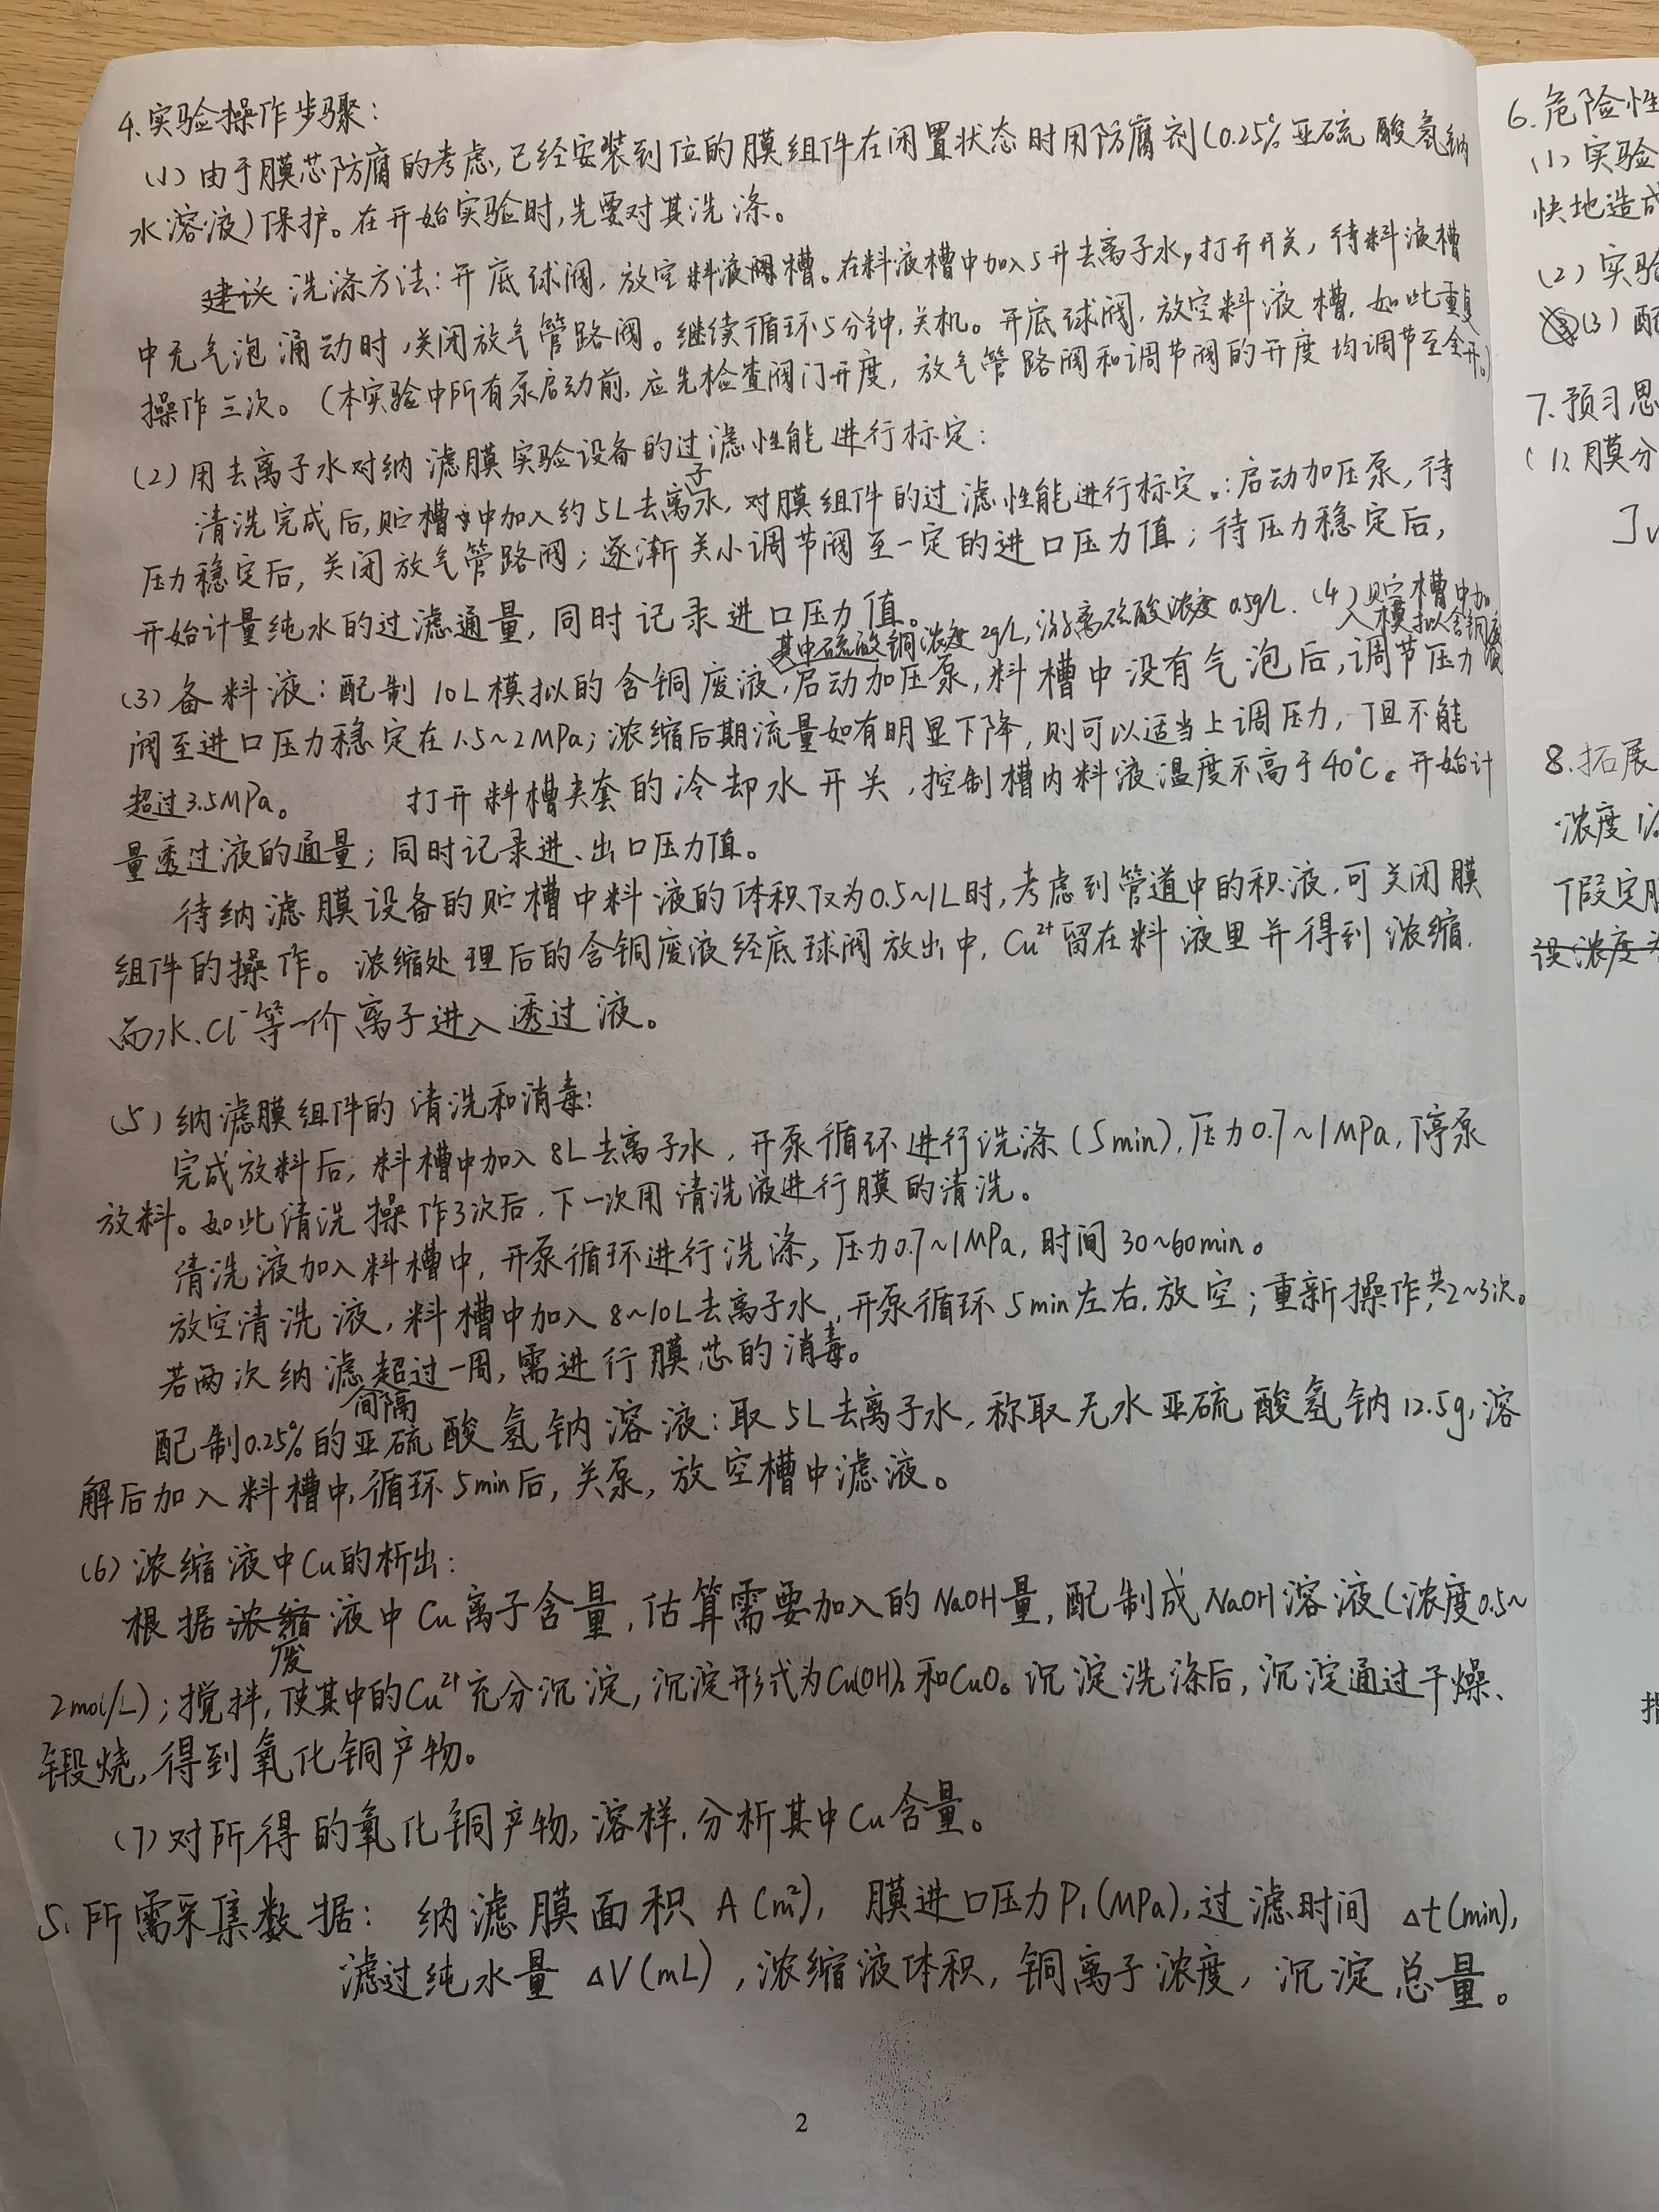 4.实验操作步骤:
(1)由于膜芯防腐的考虑,已经安装到位的膜组件在闲置状态时用防腐剂(0.25%亚硫酸氢钠
水溶液)保护。在开始实验时,先要对其洗涤。
建议洗涤方法:开底球阀,放空料液槽。在料液槽中加入5升去离子水,打开开关,待料液槽
中无气泡涌动时,关闭放气管路阀。继续循环5分钟,关机。开底球阀,放空料液槽,如此重复
操作三次。(本实验中所有泵启动前,应先检查阀门开度,放气管路阀和调节阀的开度均调节至全开。)
(2)用去离子水对纳滤膜实验设备的过滤性能进行标定:
清洗完成后,贮槽中加入约5L去离子水,对膜组件的过滤性能进行标定:启动加压泵,待
压力稳定后,关闭放气管路阀;逐渐关小调节阀至一定的进口压力值;待压力稳定后,
开始计量纯水的过滤通量,同时记录进口压力值。
其中硫酸铜浓度2g/L,游离硫酸浓度0.5g/L.(4)贮槽中加
入模拟含铜废液
(3)备料液:配制10L模拟的含铜废液,启动加压泵,料槽中没有气泡后,调节压力
阀至进口压力稳定在1.5~2MPa;浓缩后期流量如有明显下降,则可以适当上调压力,但不能
超过3.5MPa。 打开料槽夹套的冷却水开关,控制槽内料液温度不高于40℃。开始计
量透过液的通量;同时记录进、出口压力值。
待纳滤膜设备的贮槽中料液的体积仅为0.5~1L时,考虑到管道中的积液,可关闭膜
组件的操作。浓缩处理后的含铜废液经底球阀放出中,Cu²⁺留在料液里并得到浓缩,
而水、Cl⁻等一价离子进入透过液。
(5)纳滤膜组件的清洗和消毒:
完成放料后,料槽中加入8L去离子水,开泵循环进行洗涤(5min),压力0.7~1MPa,停泵
放料。如此清洗操作3次后,下一次用清洗液进行膜的清洗。
清洗液加入料槽中,开泵循环进行洗涤,压力0.7~1MPa,时间30~60min。
放空清洗液,料槽中加入8~10L去离子水,开泵循环5min左右,放空;重新操作,共2~3次。
若两次纳滤间隔超过一周,需进行膜芯的消毒。
配制0.25%的亚硫酸氢钠溶液:取5L去离子水,称取无水亚硫酸氢钠12.5g,溶
解后加入料槽中,循环5min后,关泵,放空槽中滤液。
(6)浓缩液中Cu的析出:
根据废液中Cu离子含量,估算需要加入的NaOH量,配制成NaOH溶液(浓度0.5~
2mol/L);搅拌,使其中的Cu²⁺充分沉淀,沉淀形式为Cu(OH)₂和CuO。沉淀洗涤后,沉淀通过干燥、
锻烧,得到氧化铜产物。
(7)对所得的氧化铜产物,溶样,分析其中Cu含量。
5.所需采集数据: 纳滤膜面积A(m²), 膜进口压力P₁(MPa),过滤时间 Δt(min),
滤过纯水量 ΔV(mL),浓缩液体积,铜离子浓度,沉淀总量。
2
6.危险性
(1)实验
快地造成
(2)实验
(3)配
7.预习思
(1)膜分
Jv
8.拓展
浓度
假定膜
设浓度